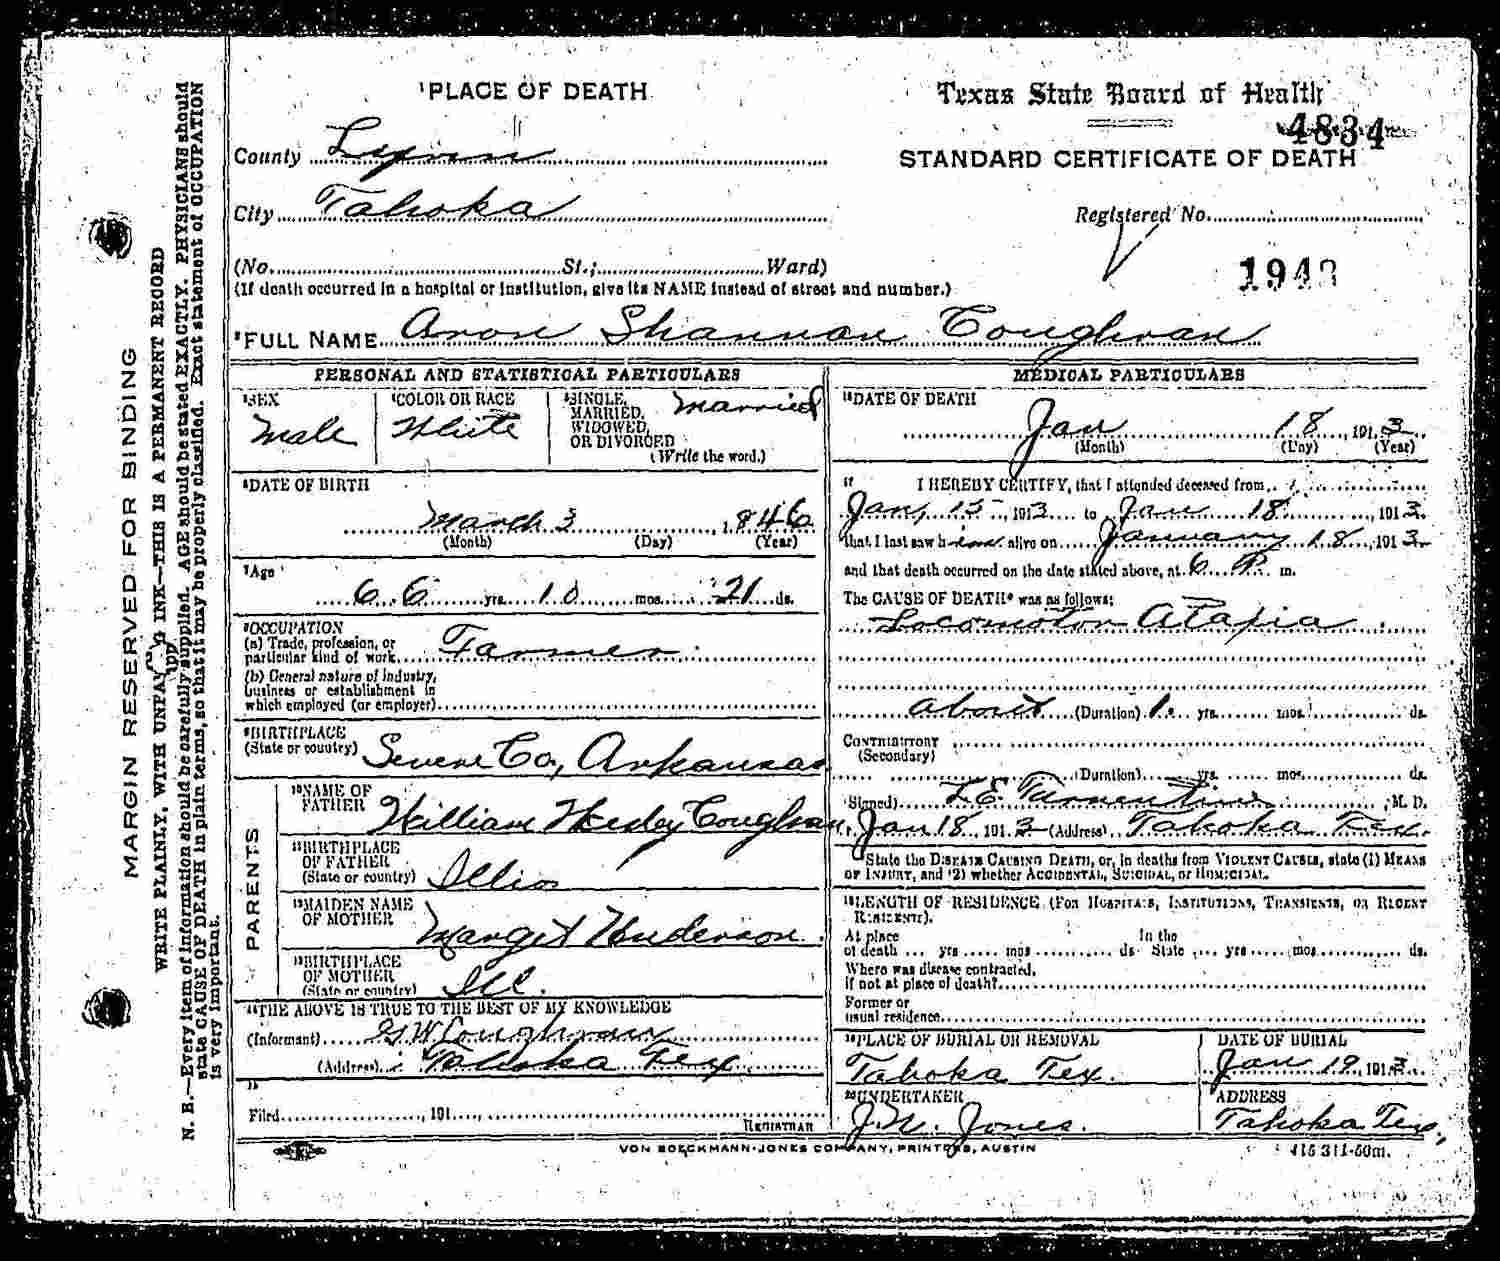 ¹PLACE OF DEATH
County Lynn
City Tahoka
(No. St.; Ward)
(If death occurred in a hospital or institution, give its NAME instead of street and number.)
Texas State Board of Health
4834
STANDARD CERTIFICATE OF DEATH
Registered No.
194
²FULL NAME Aron Shannon Coughran
PERSONAL AND STATISTICAL PARTICULARS
³SEX
Male
⁴COLOR OR RACE
White
⁵SINGLE, MARRIED, WIDOWED, OR DIVORCED
(Write the word.)
Married
⁶DATE OF BIRTH
March 3, 1846
(Month) (Day) (Year)
⁷Age
66 yrs. 10 mos. 21 ds.
⁸OCCUPATION
(a) Trade, profession, or
particular kind of work. Farmer
(b) General nature of industry,
business or establishment in
which employed (or employer)
⁹BIRTHPLACE
(State or country) Co, Arkansas
PARENTS
¹⁰NAME OF
FATHER William Wesley Coughran
¹¹BIRTHPLACE
OF FATHER
(State or country)
¹²MAIDEN NAME
OF MOTHER Marget Henderson
¹³BIRTHPLACE
OF MOTHER
(State or country) Ill.
¹⁴THE ABOVE IS TRUE TO THE BEST OF MY KNOWLEDGE
(Informant) G.W. Coughran
(Address) Tahoka Tex
¹⁵
Filed 191
REGISTRAR
MEDICAL PARTICULARS
¹⁶DATE OF DEATH
Jan 18, 1913
(Month) (Day) (Year)
¹⁷ I HEREBY CERTIFY, that I attended deceased from
Jan, 15, 1913 to Jan 18, 1913
that I last saw him alive on January 18, 1913
and that death occurred on the date stated above, at 6 P. m.
The CAUSE OF DEATH* was as follows:
Locomotor Ataxia
about (Duration) 1 yrs. mos. ds.
CONTRIBUTORY
(Secondary)
(Duration) yrs. mos. ds.
(Signed) M. D.
Jan 18, 1913 (Address) Tahoka Tex.
*State the DISEASE CAUSING DEATH, or, in deaths from VIOLENT CAUSES, state (1) MEANS
OF INJURY, and (2) whether ACCIDENTAL, SUICIDAL, or HOMICIDAL.
¹⁸LENGTH OF RESIDENCE (FOR HOSPITALS, INSTITUTIONS, TRANSIENTS, OR RECENT
RESIDENTS).
At place In the
of death yrs mos ds State yrs. mos. ds.
Where was disease contracted,
if not at place of death?
Former or
usual residence
¹⁹PLACE OF BURIAL OR REMOVAL
Tahoka Tex.
DATE OF BURIAL
Jan 19, 1913
²⁰UNDERTAKER
J.N. Jones.
ADDRESS
Tahoka Tex,
VON BOECKMANN-JONES COMPANY, PRINTERS, AUSTIN
MARGIN RESERVED FOR BINDING
WRITE PLAINLY, WITH INK—THIS IS A PERMANENT RECORD
N. B.—Every item of information should be carefully supplied. AGE should be stated EXACTLY. PHYSICIANS should
state CAUSE OF DEATH in plain terms, so that it may be properly classified. Exact statement of OCCUPATION
is very important.